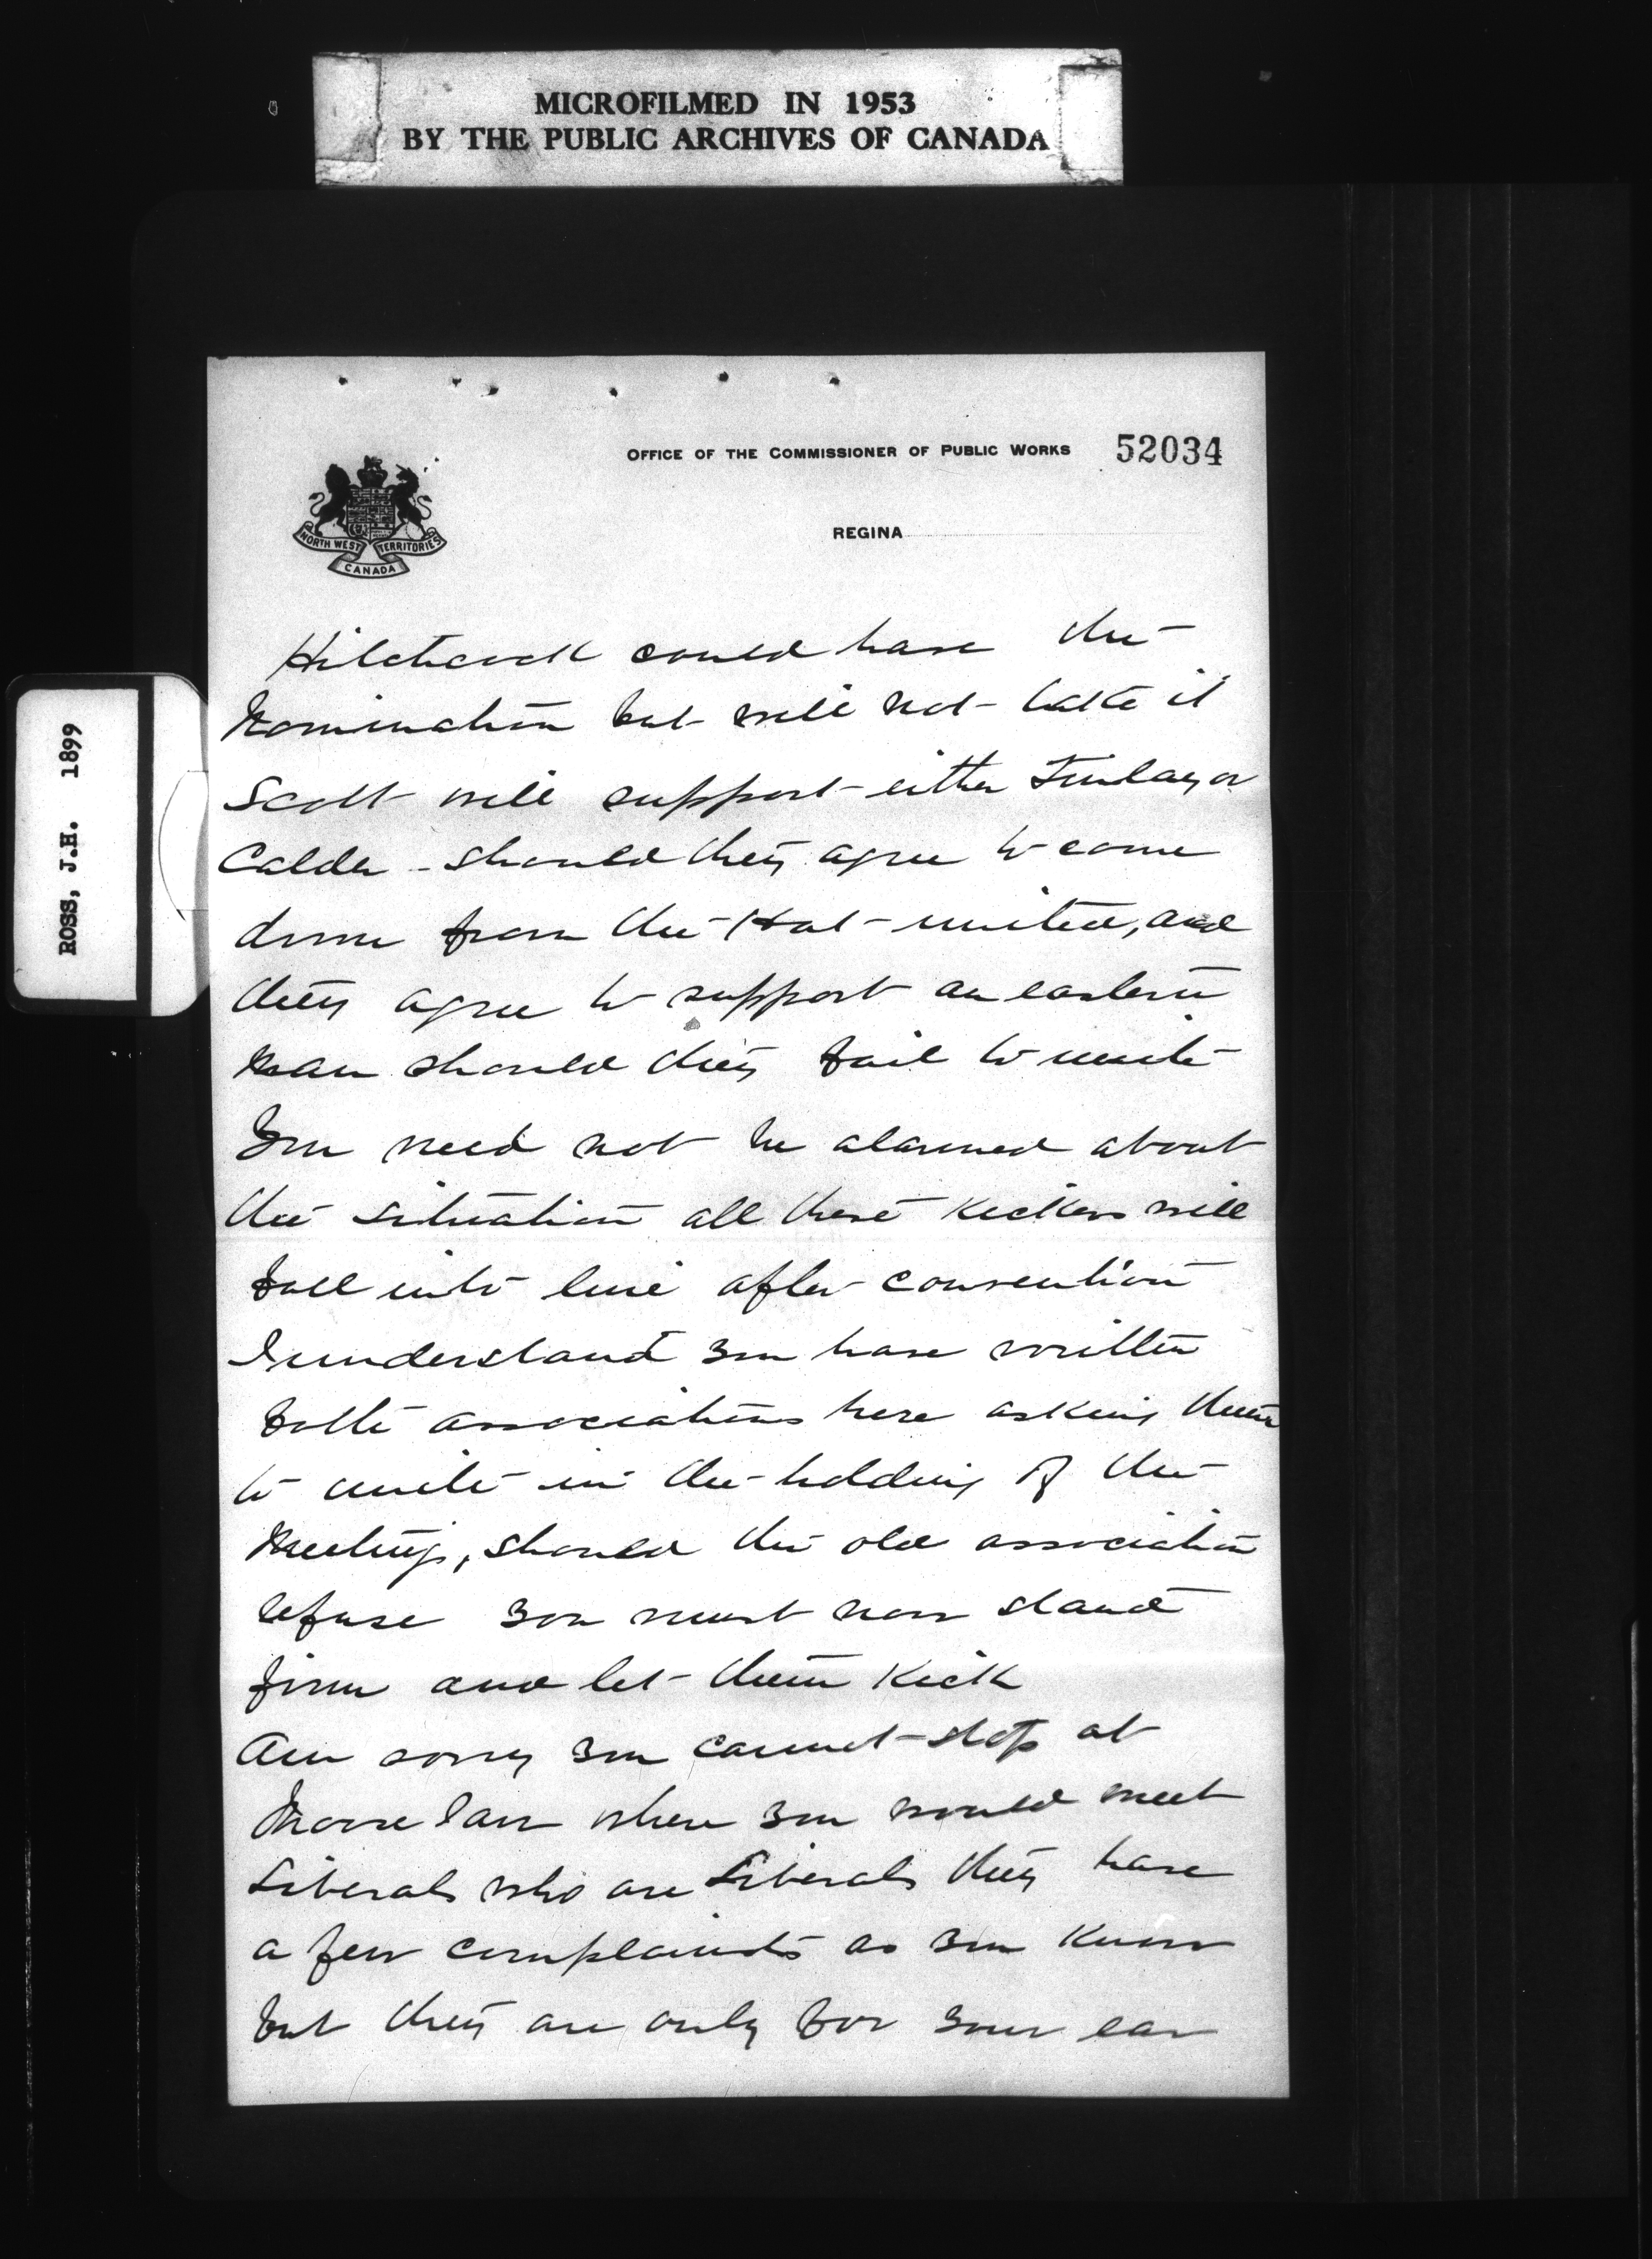 MICROFILMED IN 1953
BY THE PUBLIC ARCHIVES OF CANADA
ROSS, J.H. 1899
OFFICE OF THE COMMISSIONER OF PUBLIC WORKS 52034
NORTH WEST TERRITORIES
CANADA
REGINA
Hitchcock could have the
nomination but will not take it
Scott will support either Finlay or
Calder - should they agree to come
down from the Hat united, and
they agree to support an eastern
man should they fail to unite
You need not be alarmed about
the situation all these kickers will
fall into line after convention
I understand you have written
both associations here asking them
to unite in the holding of the
meeting, should the old association
refuse you must now stand
firm and let them kick
Am sorry you cannot stop at
Moose Jaw where you would meet
Liberals who are Liberals they have
a few complaints as you know
but they are only for your ear